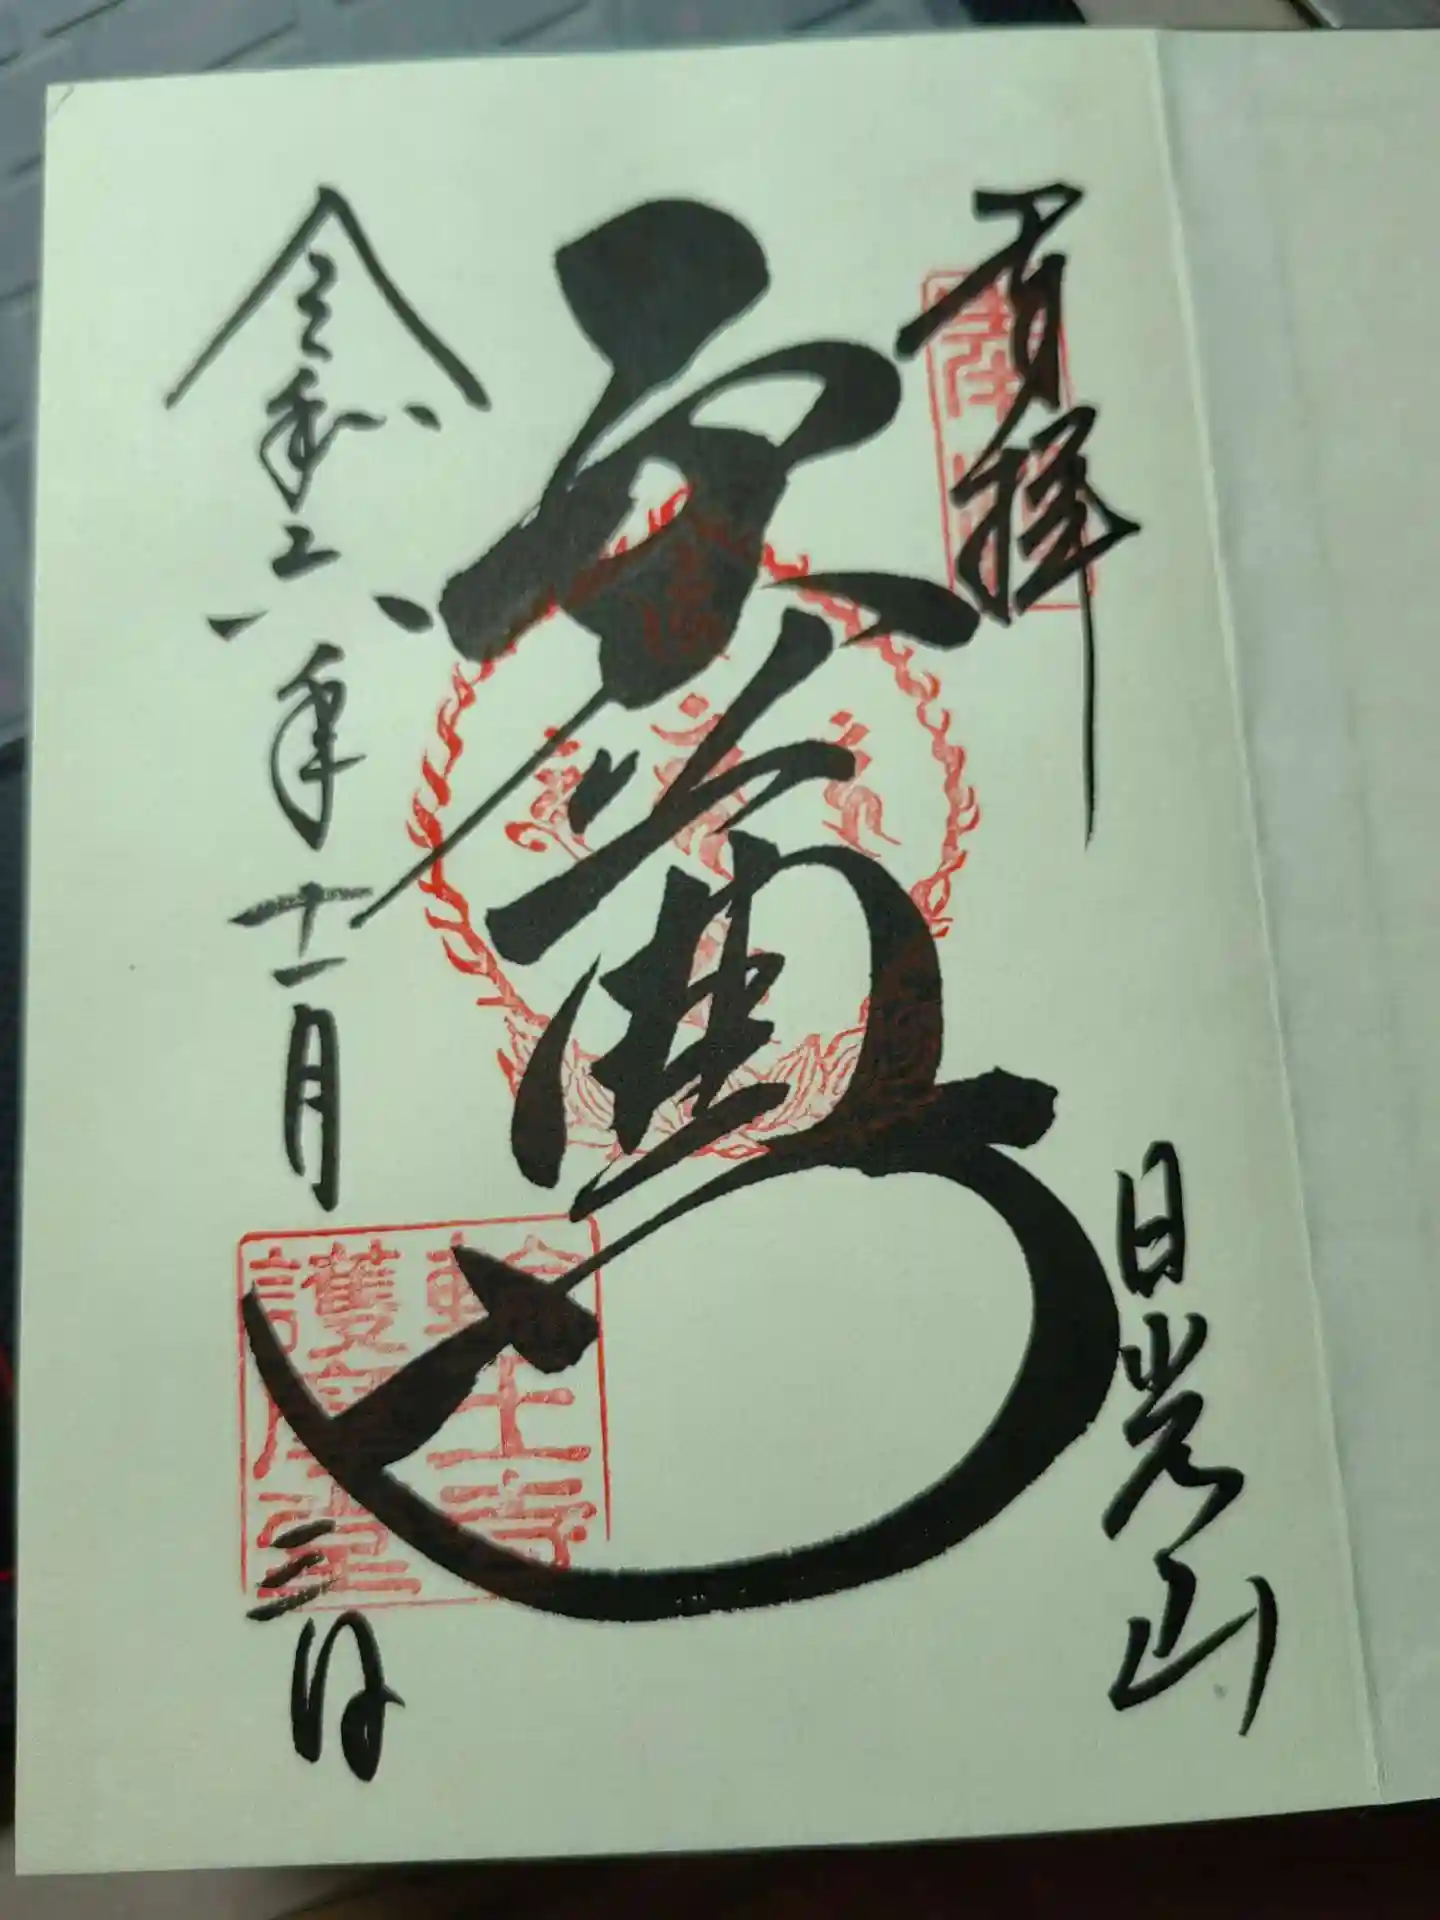 奉拝
日光山
五大尊
令和六年十一月三日
輪王寺
護摩堂